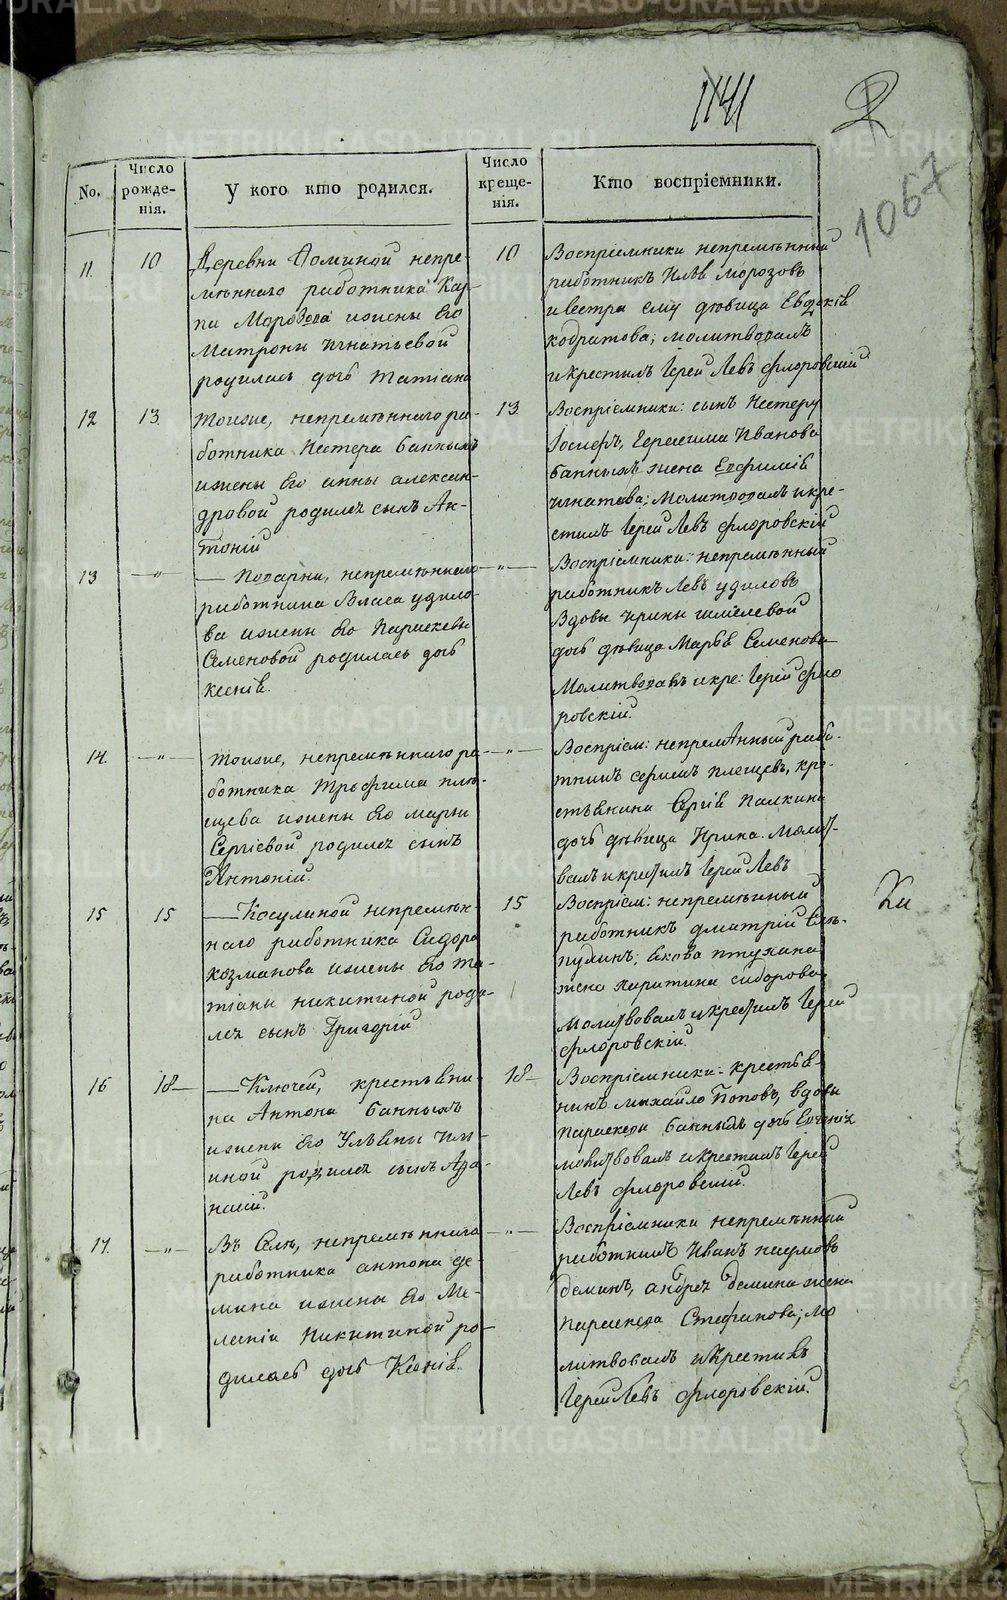 1141
2
1067
No.
Число рожде-нія.
У кого кто родился.
Число креще-нія.
Кто воспріемники.
11.
10
Деревни Фоминой непре-
мѣннаго работника Кар-
па Морозова ижены его
Матроны Игнатьевой
родилась дочь Татіана
10
Воспріемники непремѣнный
работникъ Илья Морозовъ
исестра ему дѣвица Евдокія
кодратова; молитвовалъ
икрестилъ Іерей Левъ Флоровскій
12
13.
Тоиже, непремѣннаго ра-
ботника Нестера банныхъ
ижены его анны алексан-
дровой родился сынъ Ан-
тоній
13
Воспріемники: сынъ Нестеру
Іосифъ, Герасима Иванова
банныхъ жена Евфимія
игнатова; Молитвовалъ икре-
стилъ Іерей Левъ Флоровскій
13
—„—
— непремѣннаго
работника Власа удило-
ва ижены его Параскевы
Семеновой родилась дочь
ксенія.
—„—
Воспріемники: непремѣнный
работникъ Левъ удиловъ
Вдовы ирины шмелевой
дочь дѣвица Марья Семенова
Молитвовалъ икре: Іерей Фло
ровскій.
14.
—„—
Тоиже, непремѣннаго ра-
ботника Трофима пле-
щева ижены его марьи
Сергіевой родился сынъ
Антоній.
—„—
Воспріем: непремѣнный рабо-
тникъ плещевъ, кре-
стьянина Сергія Палкина
дочь дѣвица Ирина. Молит-
валъ икрестилъ Іерей Левъ
15
15
—Косулиной непремѣн-
наго работника Сидора
козманова ижены его та-
тіаны никитиной роди-
лся сынъ Григорій
15
Воспріем: непремѣнный
работникъ дмитрій
якова птухина
жена харитина сидорова
Молитвовалъ икрестилъ Іерей
Флоровскій.
16
18—
—Ключей, крестьяни-
на Антона банныхъ
ижены его Ульяны
родился сынъ Афа-
насій.
18—
Воспріемники: крестья-
нинъ михайло Поповъ, вдовы
Параскевы банныхъ дочь Евгенія
молитвовалъ икрестилъ Іерей
Левъ Флоровскій.
17.
—„—
Въ Селѣ, непремѣннаго
работника антона де-
мина ижены его Ме-
ланіи Никитиной ро-
дилась дочь Ксенія.
—„—
Воспріемники непремѣнный
работникъ Иванъ наумовъ
деминъ, андрея демина жена
параскева Стефанова; Мо
литвовалъ икрестилъ
Іерей Левъ Флоровскій.
METRIKI.GASO-URAL.RU